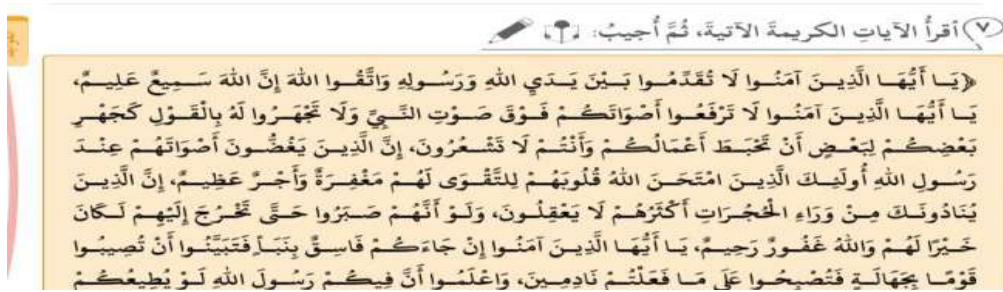 ٧ أقرأُ الآياتِ الكريمةَ الآتيةَ، ثُمَّ أُجيبُ:
﴿يَا أَيُّهَا الَّذِينَ آمَنُوا لَا تُقَدِّمُوا بَيْنَ يَدَيِ اللهِ وَرَسُولِهِ وَاتَّقُوا اللهَ إِنَّ اللهَ سَمِيعٌ عَلِيمٌ،
يَا أَيُّهَا الَّذِينَ آمَنُوا لَا تَرْفَعُوا أَصْوَاتَكُمْ فَوْقَ صَوْتِ النَّبِيِّ وَلَا تَجْهَرُوا لَهُ بِالْقَوْلِ كَجَهْرِ
بَعْضِكُمْ لِبَعْضٍ أَنْ تَحْبَطَ أَعْمَالُكُمْ وَأَنْتُمْ لَا تَشْعُرُونَ، إِنَّ الَّذِينَ يَغُضُّونَ أَصْوَاتَهُمْ عِنْدَ
رَسُولِ اللهِ أُولَئِكَ الَّذِينَ امْتَحَنَ اللهُ قُلُوبَهُمْ لِلتَّقْوَى لَهُمْ مَغْفِرَةٌ وَأَجْرٌ عَظِيمٌ، إِنَّ الَّذِينَ
يُنَادُونَكَ مِنْ وَرَاءِ الْحُجُرَاتِ أَكْثَرُهُمْ لَا يَعْقِلُونَ، وَلَوْ أَنَّهُمْ صَبَرُوا حَتَّى تَخْرُجَ إِلَيْهِمْ لَكَانَ
خَيْرًا لَهُمْ وَاللهُ غَفُورٌ رَحِيمٌ، يَا أَيُّهَا الَّذِينَ آمَنُوا إِنْ جَاءَكُمْ فَاسِقٌ بِنَبَأٍ فَتَبَيَّنُوا أَنْ تُصِيبُوا
قَوْمًا بِجَهَالَةٍ فَتُصْبِحُوا عَلَى مَا فَعَلْتُمْ نَادِمِينَ، وَاعْلَمُوا أَنَّ فِيكُمْ رَسُولَ اللهِ لَوْ يُطِيعُكُمْ